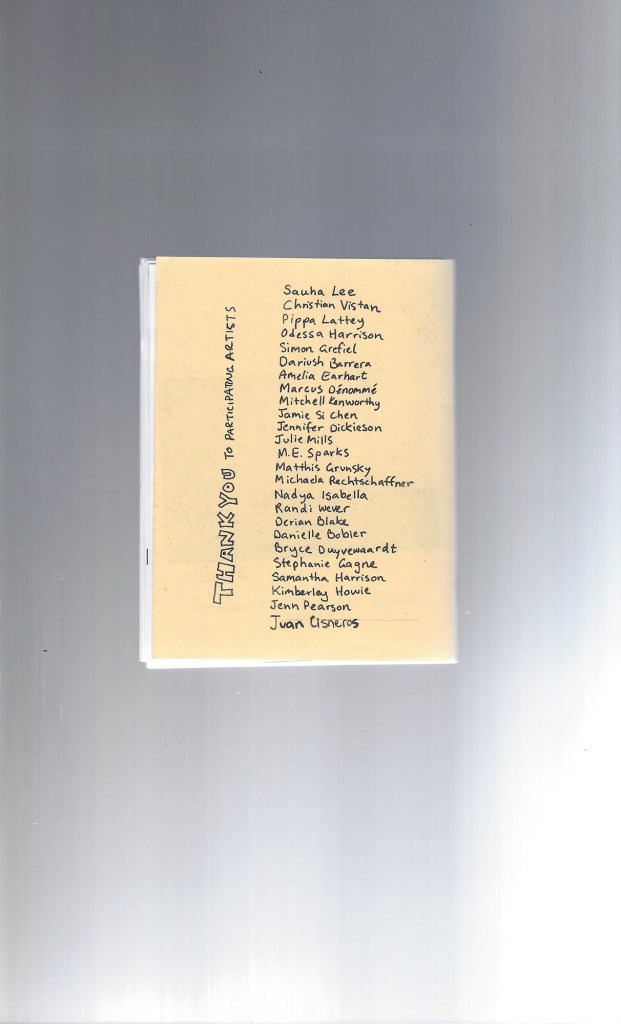 THANK YOU TO PARTICIPATING ARTISTS
Sauha Lee
Christian Vistan
Pippa Lattey
Odessa Harrison
Simon Grefiel
Dariush Barrera
Amelia Earhart
Marcus Dénommé
Mitchell Kenworthy
Jamie Si Chen
Jennifer Dickieson
Julie Mills
M.E. Sparks
Matthis Grunsky
Michaela Rechtschaffner
Nadya Isabella
Randi Wever
Derian Blake
Danielle Bobier
Bryce Duyvewaardt
Stephanie Gagne
Samantha Harrison
Kimberley Howie
Jenn Pearson
Juan Cisneros